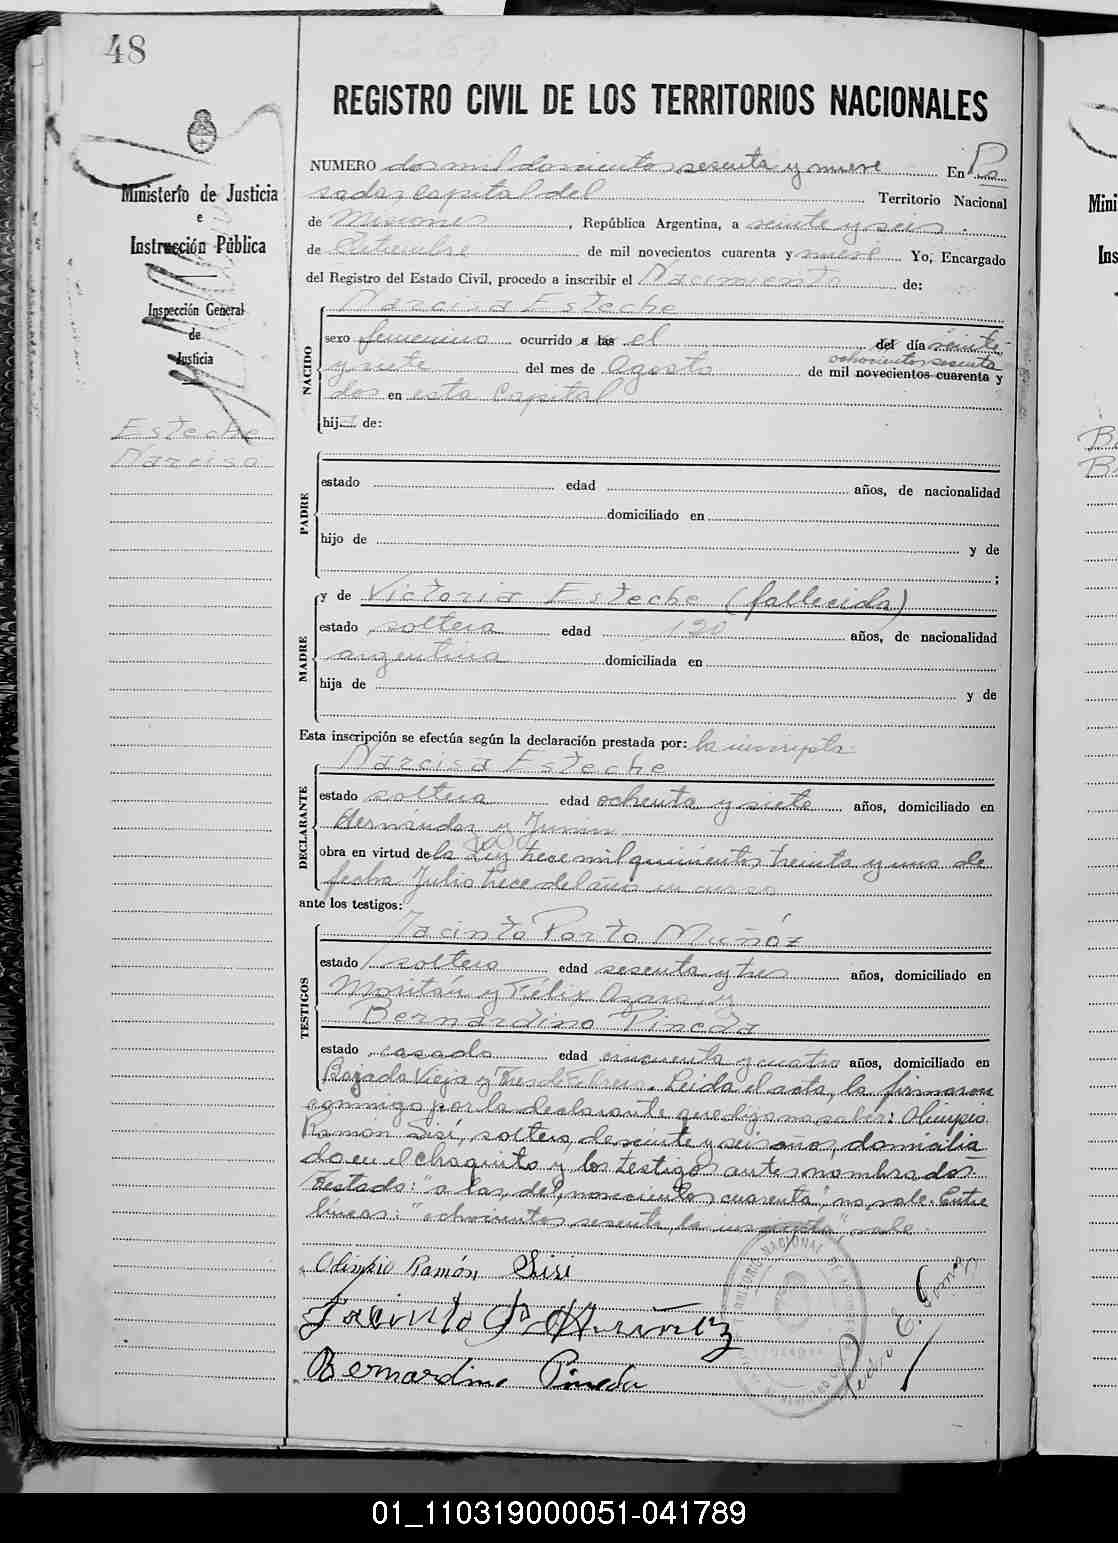 48
REGISTRO CIVIL DE LOS TERRITORIOS NACIONALES
Ministerio de Justicia
e
Instrucción Pública
Inspección General
de
Justicia
Esteche
Narcisa
NUMERO dos mil doscientos sesenta y nueve En Po
sadas capital del Territorio Nacional
de Misiones, República Argentina, a veinte y seis
de Setiembre de mil novecientos cuarenta y nueve Yo, Encargado
del Registro del Estado Civil, procedo a inscribir el Nacimiento de:
NACIDO
Narcisa Esteche
sexo femenino ocurrido a las el del día veinte
ochocientos sesenta
y siete del mes de Agosto de mil novecientos cuarenta y
dos en esta Capital
hij de:
PADRE
estado edad años, de nacionalidad
domiciliado en
hijo de y de
;
MADRE
y de Victoria Esteche (fallecida)
estado soltera edad 120 años, de nacionalidad
argentina domiciliada en
hija de y de
Esta inscripción se efectúa según la declaración prestada por: la inscripta
DECLARANTE
Narcisa Esteche
estado soltera edad ochenta y siete años, domiciliado en
Hernández y Junin
obra en virtud de la Ley trece mil quinientos treinta y uno de
fecha Julio trece del año en curso
ante los testigos:
TESTIGOS
Jacinto Porto Muñóz
estado soltero edad sesenta y tres años, domiciliado en
y Félix Azara y
Bernardino Pineda
estado casado edad cincuenta y cuatro años, domiciliado en
Bajada Vieja y Tres de Febrero. Leida el acta, la firmaron
conmigo por la declarante que dijo no saber: Olimpio
Ramón Sisi, soltero, de veinte y seis años, domicilia
do en el chaquito y los testigos antes nombrados.
Testado: "a las, del, novecientos cuarenta", no vale. Entre
lineas: "ochocientos sesenta, la inscripta" vale.
Olimpio Ramón Sisi
Jacinto P. Muñóz
Bernardino Pineda
01_110319000051-041789